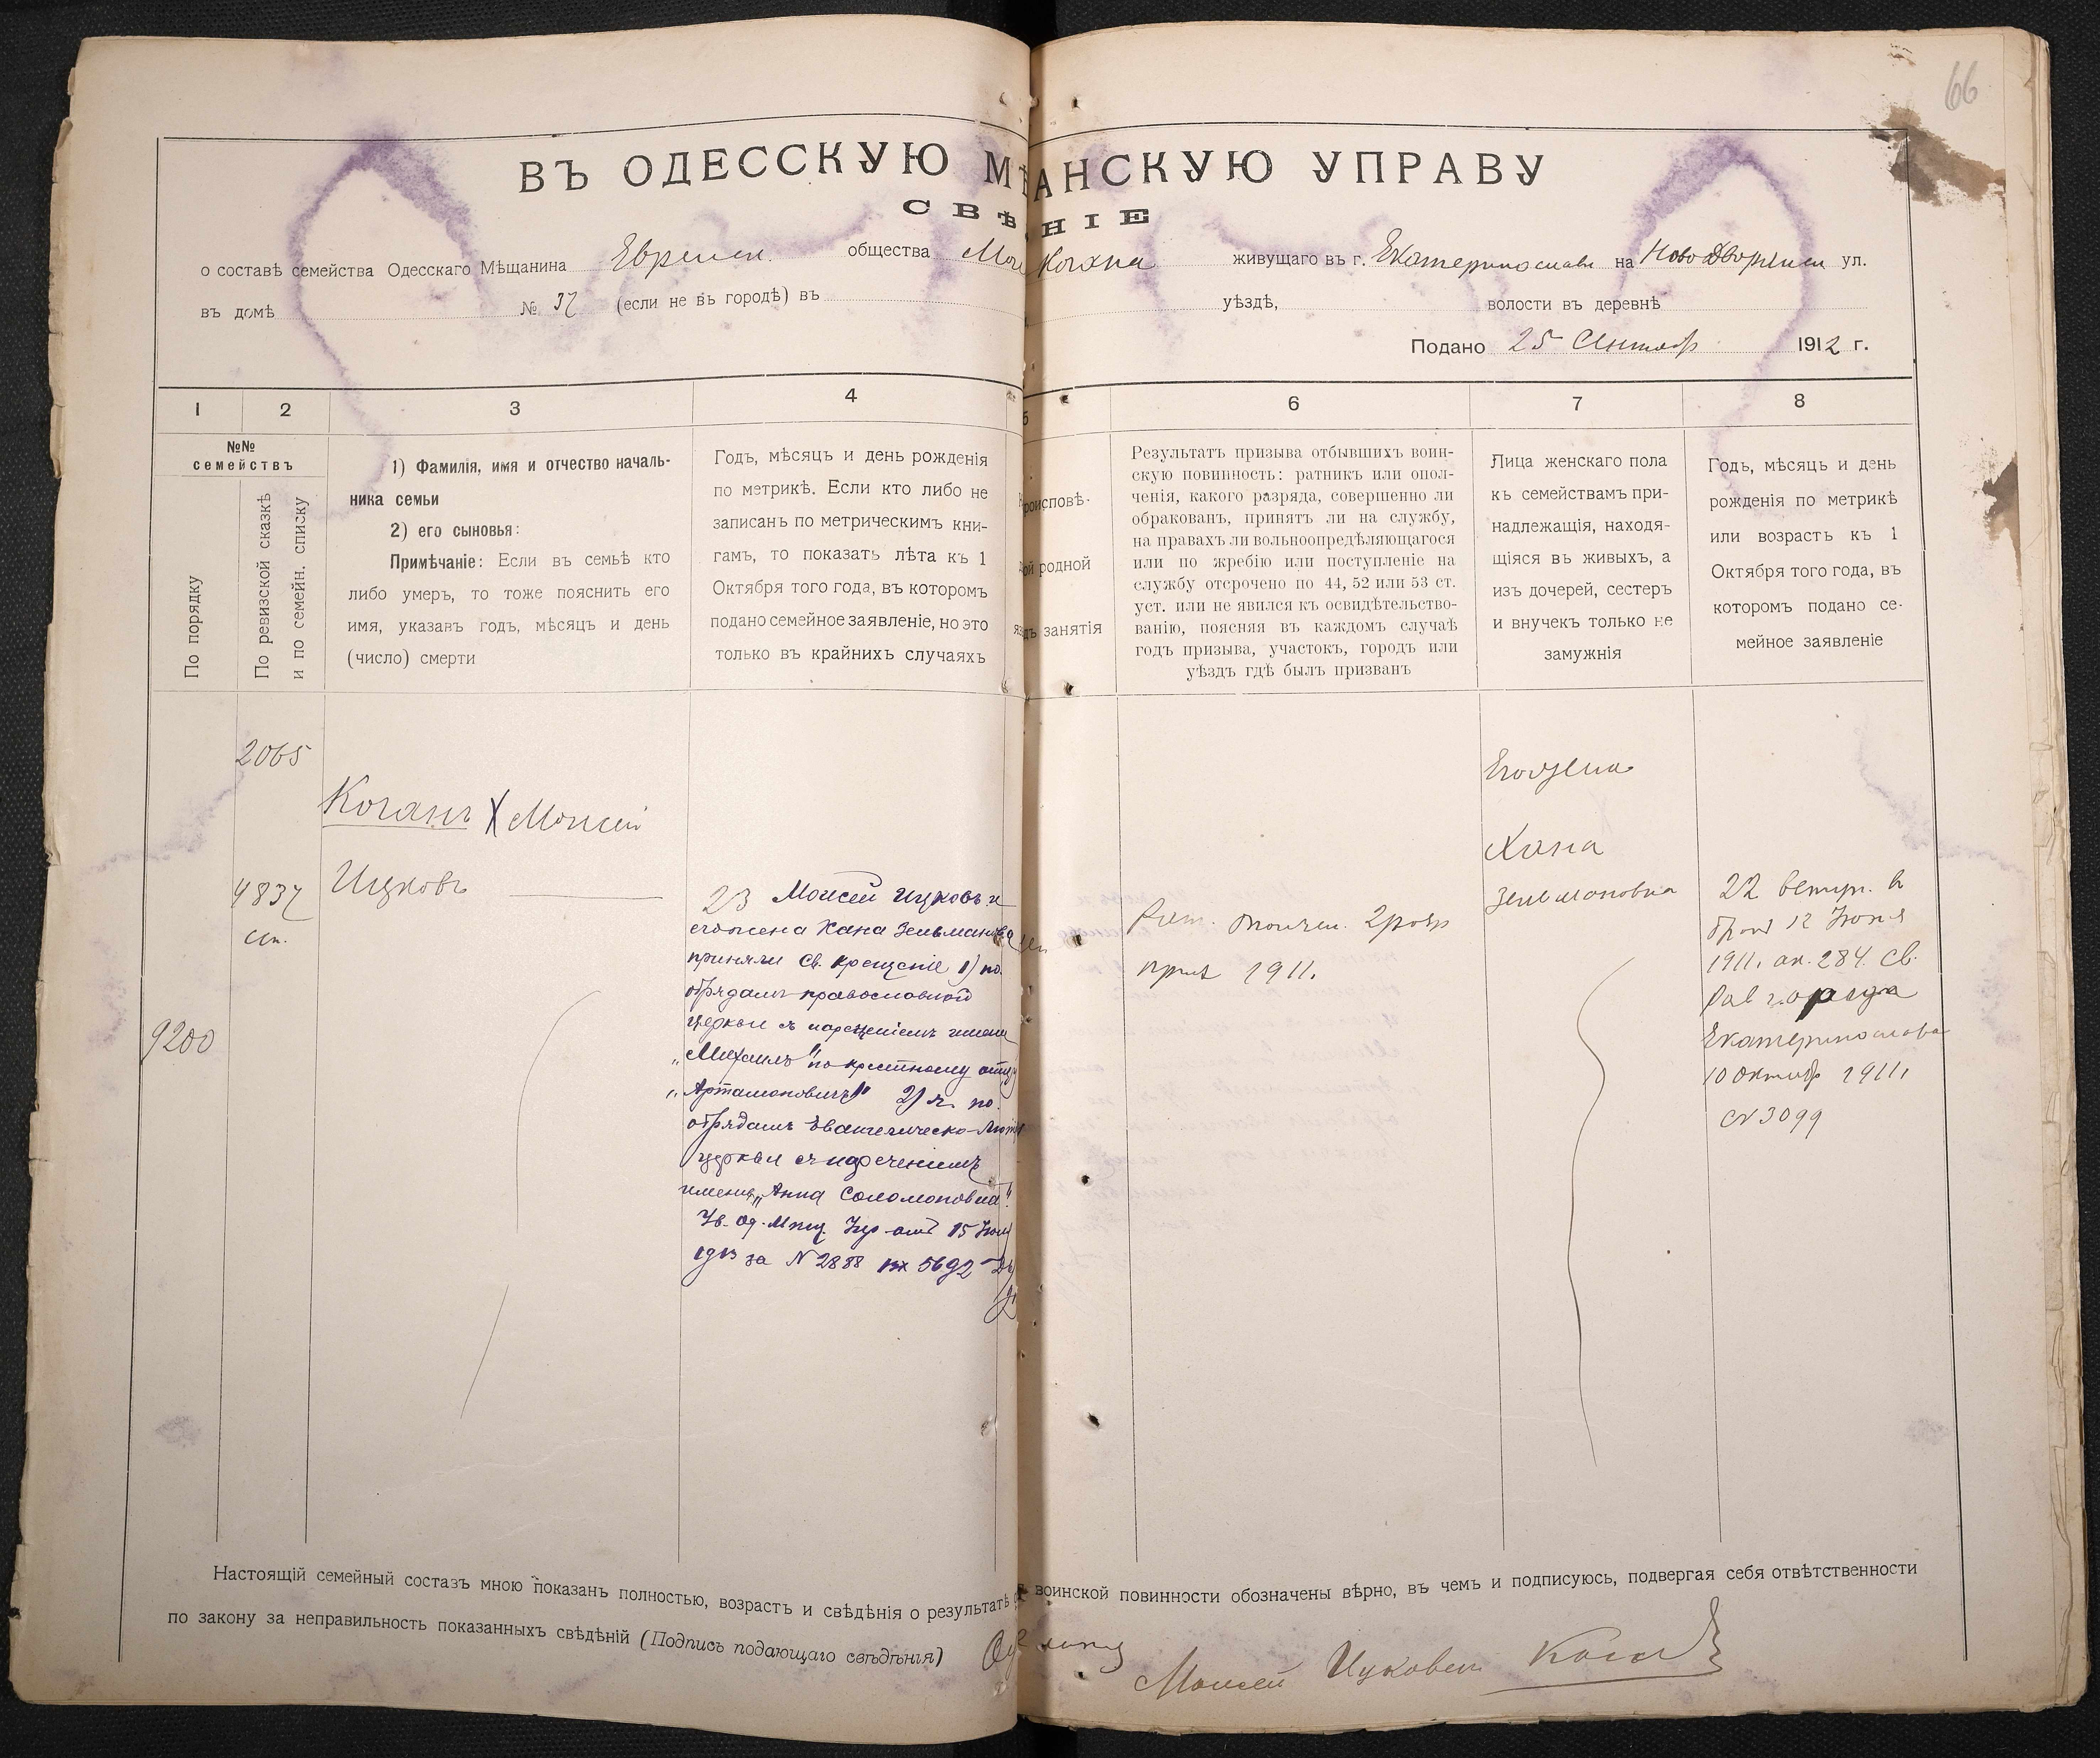 66
ВЪ ОДЕССКУЮ МѢ АНСКУЮ УПРАВУ
СВѢ НІЕ
о составѣ семейства Одесскаго Мѣщанина Еврейск. общества Моис Когана живущаго въ г. Екатеринославѣ на Ново Дворянск ул.
въ домѣ № 37 (если не въ городѣ) въ уѣздѣ, волости въ деревнѣ
Подано 25 Сентяб 1912 г.
1 2 3 4 5 6 7 8
№№
семействъ
По порядку
По ревизской сказкѣ
и по семейн. списку
1) Фамилія, имя и отчество началь-
ника семьи
2) его сыновья:
Примѣчаніе: Если въ семьѣ кто
либо умеръ, то тоже пояснить его
имя, указавъ годъ, мѣсяцъ и день
(число) смерти
Годъ, мѣсяцъ и день рожденія
по метрикѣ. Если кто либо не
записанъ по метрическимъ кни-
гамъ, то показать лѣта къ 1
Октября того года, въ которомъ
подано семейное заявленіе, но это
только въ крайнихъ случаяхъ
роисповѣ-
ой родной
дъ занятія
Результатъ призыва отбывшихъ воин-
скую повинность: ратникъ или опол-
ченія, какого разряда, совершенно ли
обракованъ, принятъ ли на службу,
на правахъ ли вольноопредѣляющагося
или по жребію или поступленіе на
службу отсрочено по 44, 52 или 53 ст.
уст. или не явился къ освидѣтельство-
ванію, поясняя въ каждомъ случаѣ
годъ призыва, участокъ, городъ или
уѣздъ гдѣ былъ призванъ
Лица женскаго пола
къ семействамъ при-
надлежащія, находя-
щіяся въ живыхъ, а
изъ дочерей, сестеръ
и внучекъ только не
замужнія
Годъ, мѣсяцъ и день
рожденія по метрикѣ
или возрастъ къ 1
Октября того года, въ
которомъ подано се-
мейное заявленіе
2065
Коганъ X Моисей
4837
сп.
Ицковъ
9200
23 Моисей Ицковъ и
его жена Хана Зельманова
приняли Св. крещеніе 1) по
обрядамъ православной
церкви съ нареченіемъ имени
„Михаилъ" по крестному отцу
„Артамоновичъ" 2) я по
обрядамъ Евангелическо-Лют
церкви съ нареченіемъ
имени „Анна Соломоновна".
Ув. Од. Мѣщ. Упр отъ 15 Іюн
1913 за N 2888 вх 5692
Рат. ополчен. 2 разр
приз 1911.
Его жена
Хана
Зельмановна
22 вступ. в
бракъ 12 Іюня
1911. ак. 284. св.
Рав города
Екатеринослава
10 октяб 1911.
N 3099
Настоящій семейный составъ мною показанъ полностью, возрастъ и свѣдѣнія о результатѣ воинской повинности обозначены вѣрно, въ чемъ и подписуюсь, подвергая себя отвѣтственности
по закону за неправильность показанныхъ свѣдѣній (Подпись подающаго свѣдѣнія)
Моисей Ицковичъ Коган